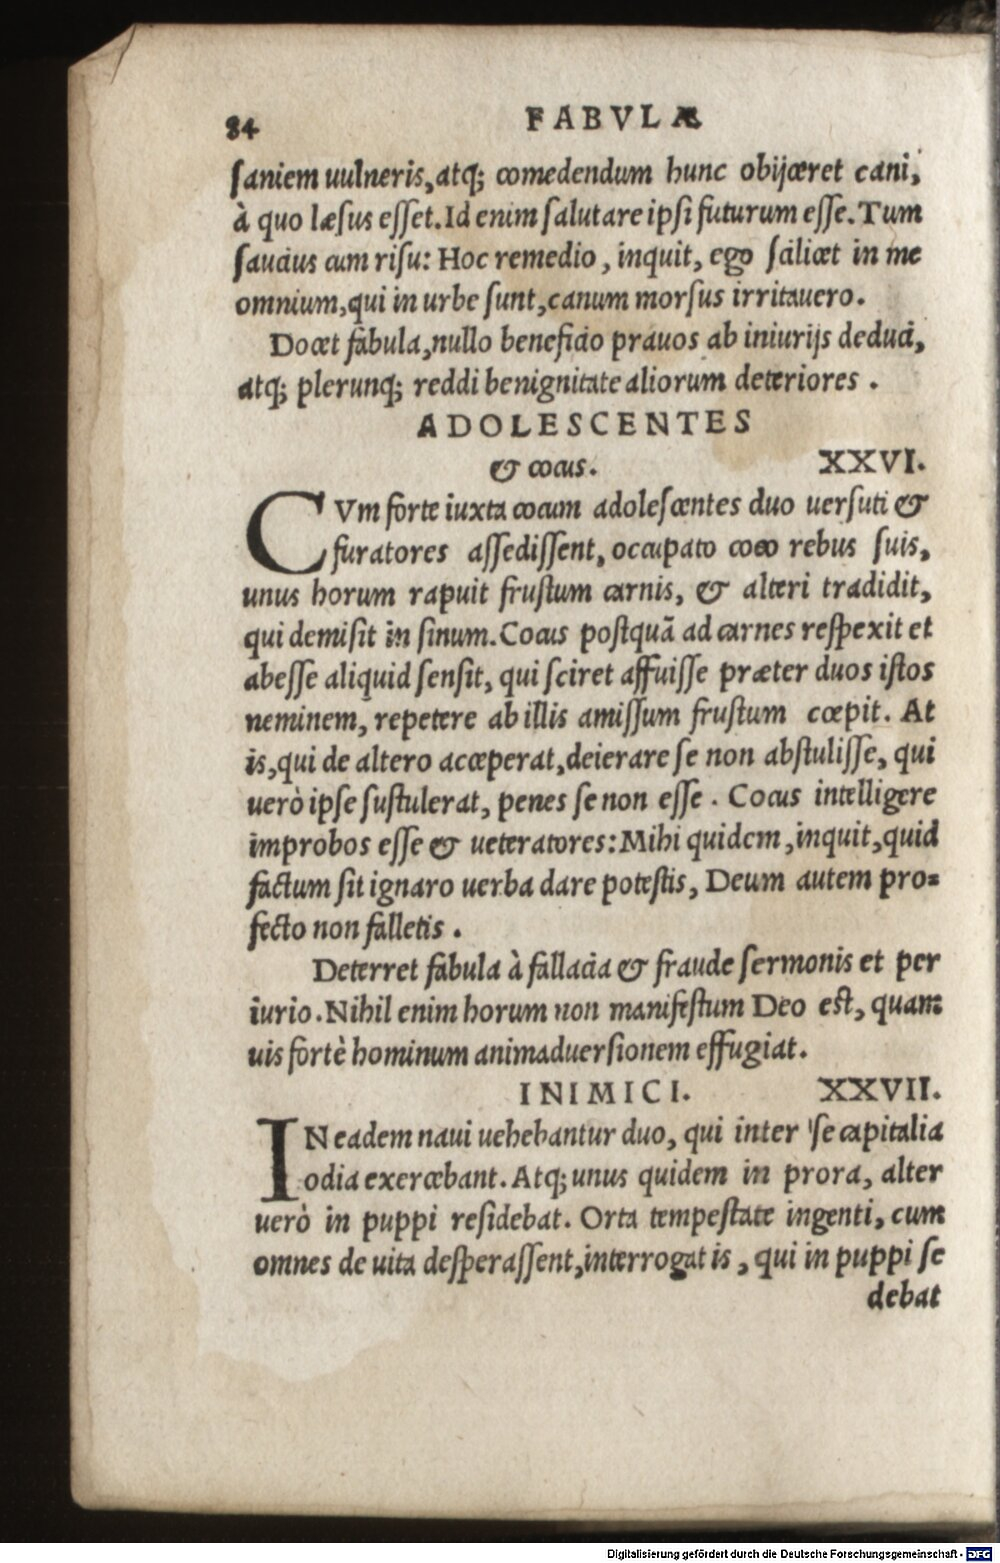 84 FABVLÆ
ſaniem uulneris, atq; comedendum hunc obijceret cani,
à quo læſus eſſet. Id enim ſalutare ipſi futurum eſſe. Tum
ſaucius cum riſu: Hoc remedio, inquit, ego ſcilicet in me
omnium, qui in urbe ſunt, canum morſus irritauero.
Docet fabula, nullo beneficio prauos ab iniurijs deduci,
atq; plerunq; reddi benignitate aliorum deteriores.
ADOLESCENTES
& cocus. XXVI.
CVm forte iuxta cocum adoleſcentes duo uerſuti &
furatores aſſediſſent, occupato coco rebus ſuis,
unus horum rapuit fruſtum carnis, & alteri tradidit,
qui demiſit in ſinum. Cocus poſtquã ad carnes reſpexit et
abeſſe aliquid ſenſit, qui ſciret affuiſſe præter duos iſtos
neminem, repetere ab illis amiſſum fruſtum cœpit. At
is, qui de altero acceperat, deierare ſe non abſtuliſſe, qui
uerò ipſe ſuſtulerat, penes ſe non eſſe. Cocus intelligere
improbos eſſe & ueteratores: Mihi quidem, inquit, quid
factum ſit ignaro uerba dare poteſtis, Deum autem pro=
fecto non falletis.
Deterret fabula à fallacia & fraude ſermonis et per
iurio. Nihil enim horum non manifeſtum Deo eſt, quam
uis fortè hominum animaduerſionem effugiat.
INIMICI. XXVII.
IN eadem naui uehebantur duo, qui inter ſe capitalia
odia exercebant. Atq; unus quidem in prora, alter
uerò in puppi reſidebat. Orta tempeſtate ingenti, cum
omnes de uita deſperaſſent, interrogat is, qui in puppi ſe
debat
Digitalisierung gefördert durch die Deutsche Forschungsgemeinschaft - DFG